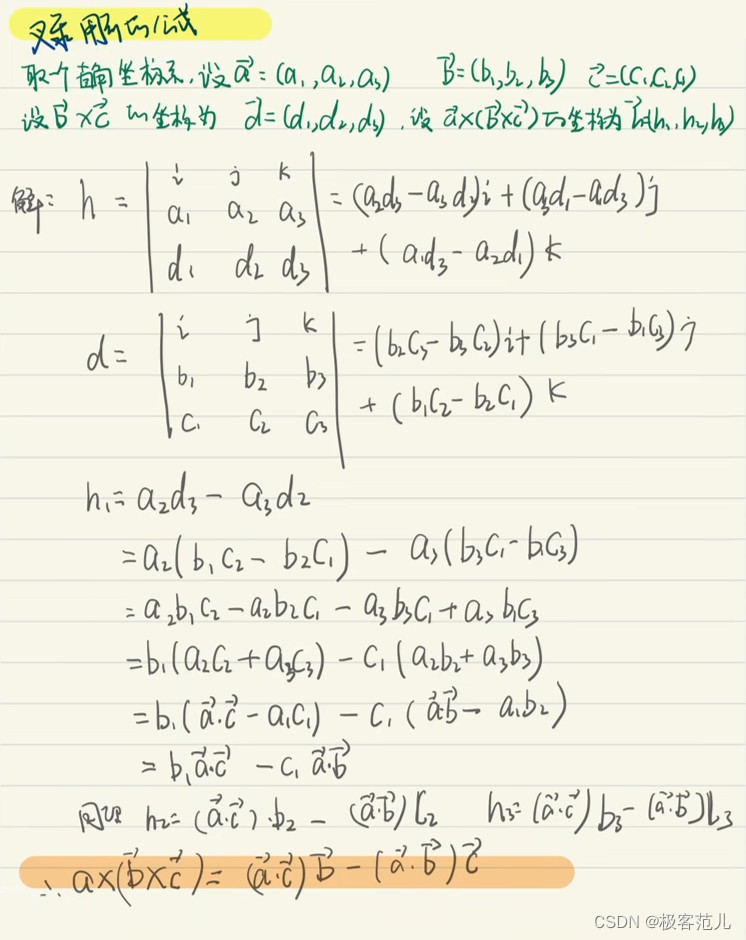 叉乘用到的公式
取个直角坐标系,设a⃗=(a₁,a₂,a₃) b⃗=(b₁,b₂,b₃) c⃗=(c₁,c₂,c₃)
设b⃗×c⃗的坐标为 d⃗=(d₁,d₂,d₃),设a⃗×(b⃗×c⃗)的坐标为h⃗(h₁,h₂,h₃)
解: h = | i j k | = (a₂d₃-a₃d₂)i+(a₃d₁-a₁d₃)j
| a₁ a₂ a₃ |
| d₁ d₂ d₃ | +(a₁d₃-a₂d₁)k
d= | i j k | =(b₂c₃-b₃c₂)i+(b₃c₁-b₁c₃)j
| b₁ b₂ b₃ |
| c₁ c₂ c₃ | +(b₁c₂-b₂c₁)k
h₁=a₂d₃-a₃d₂
=a₂(b₁c₂-b₂c₁)-a₃(b₃c₁-b₁c₃)
=a₂b₁c₂-a₂b₂c₁-a₃b₃c₁+a₃b₁c₃
=b₁(a₂c₂+a₃c₃)-c₁(a₂b₂+a₃b₃)
=b₁(a⃗·c⃗-a₁c₁)-c₁(a⃗·b⃗-a₁b₂)
=b₁a⃗·c⃗-c₁a⃗·b⃗
同理 h₂=(a⃗·c⃗)·b₂-(a⃗·b⃗)c₂ h₃=(a⃗·c⃗)b₃-(a⃗·b⃗)c₃
∴a×(b⃗×c⃗)=(a⃗·c⃗)b⃗-(a⃗·b⃗)c⃗
CSDN @极客范儿